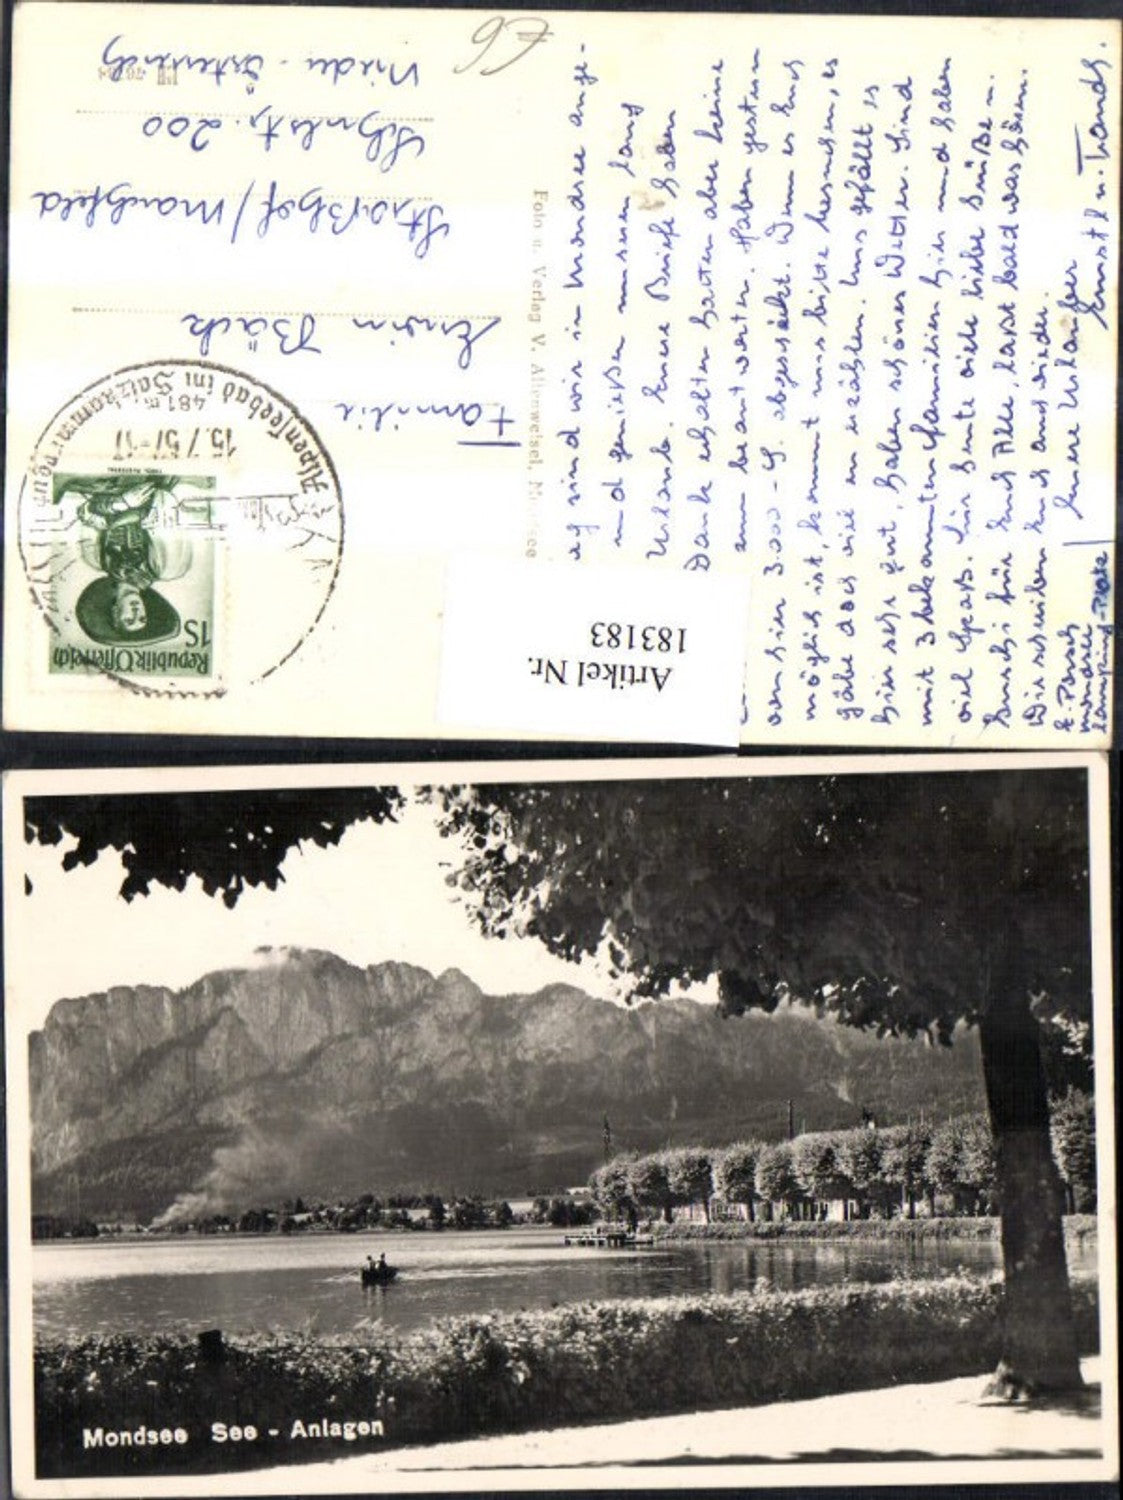 Familie
Erwin Bäck
Straßhof/Marchfeld
Schulstr. 200
Nieder-Österreich
Foto u. Verlag V. Allerweisel, Mondsee
Republik Österreich
1S
15.7.57-17
481 m
Alpenseebad im Salzkammergut
Artikel Nr.
183183
sind wir in Mondsee ange-
und genießen unseren lang
Urlaub. Eure Briefe haben
Dank erhalten hatten aber keine
zum beantworten. Haben gestern
von hier 3.000 - S. abgeschickt. Wenn es Euch
möglich ist, kommt uns bitte besuchen, es
gäbe doch viel zu erzählen. Uns gefällt es
hier sehr gut, haben schönes Wetter. Sind
mit 3 bekannten Familien hier und haben
viel Spaß. Für heute viele liebe Grüße u.
Bussi für Euch Alle, laßt bald was hören.
Wir schreiben Euch auch wieder.
Eure Urlauber
Ernstl u. Traudl.
Mondsee
Camping-Platz
Mondsee See - Anlagen